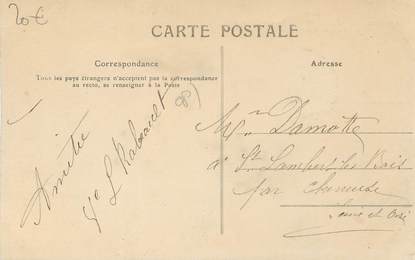 20€
CARTE POSTALE
Correspondance
Tous les pays étrangers n'acceptent pas la correspondance
au recto, se renseigner à la Poste
Adresse
Amitié
L Rabault
M Damotte
à St Lambert les Bois
par
Seine et Oise